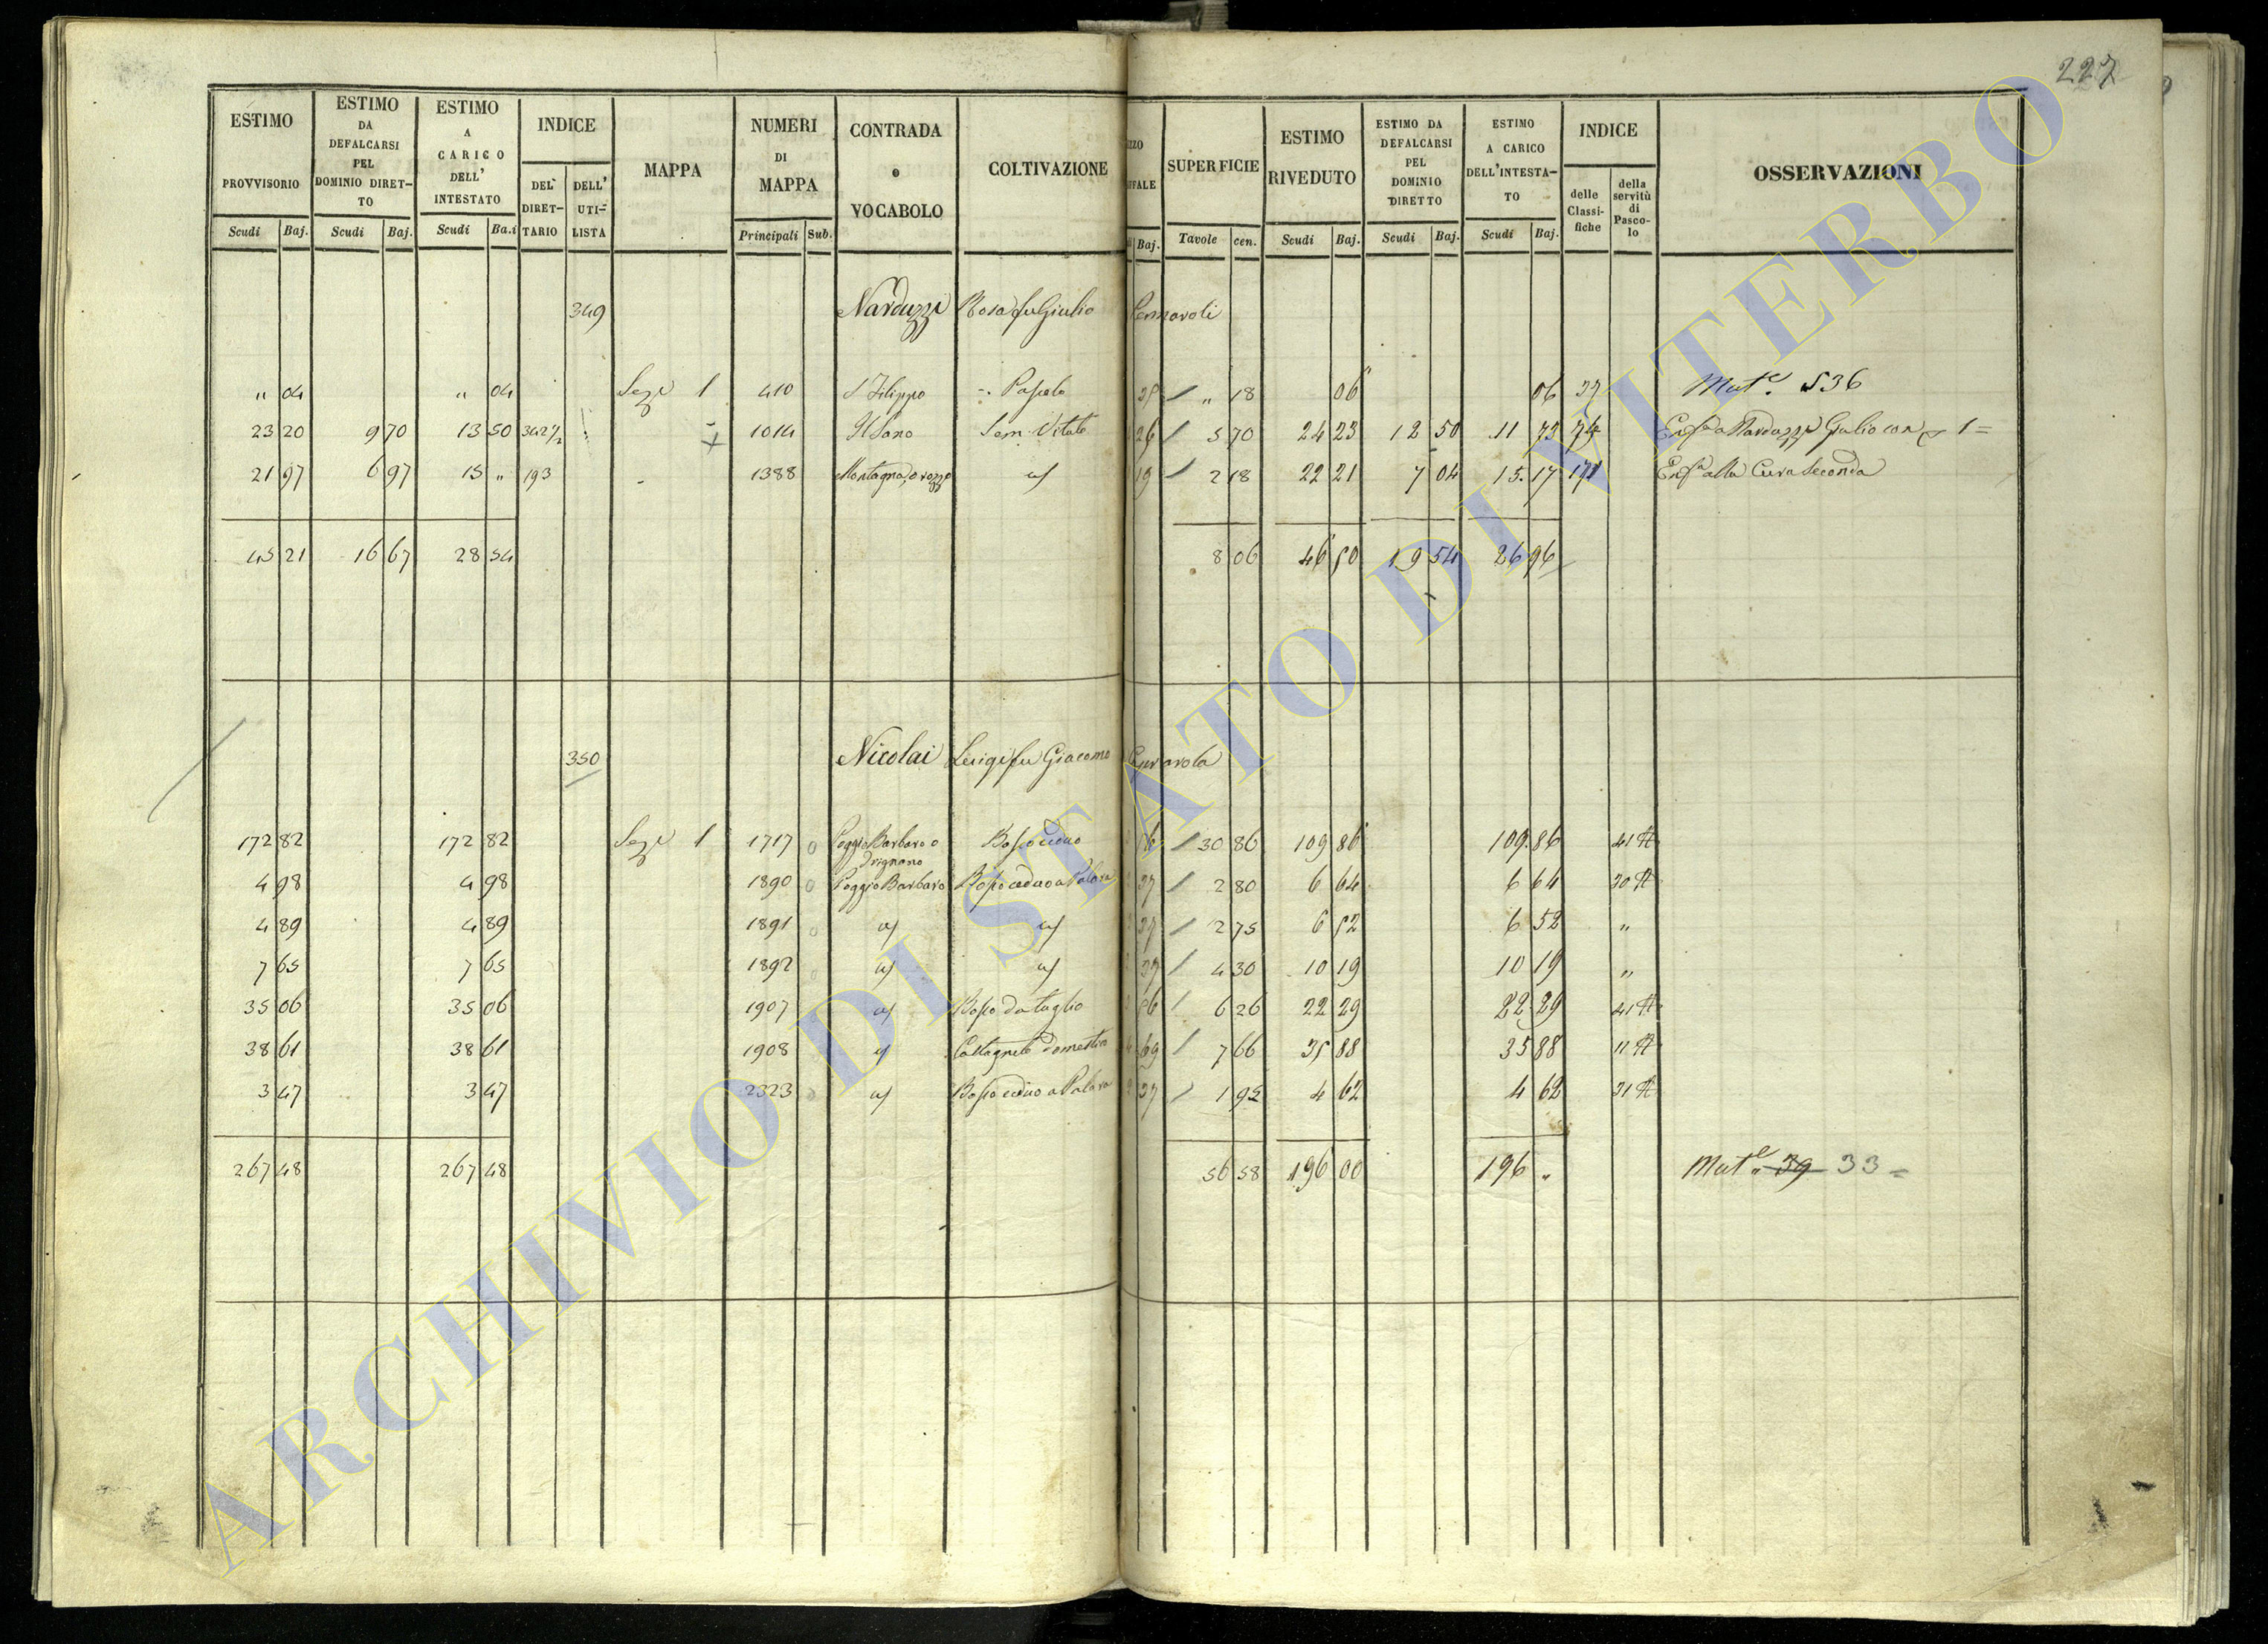 227
ESTIMO PROVVISORIO Scudi Baj.
ESTIMO DA DEFALCARSI PEL DOMINIO DIRETTO Scudi Baj.
ESTIMO A CARICO DELL' INTESTATO Scudi Ba.i
INDICE DEL DIRETTARIO DELL' UTILISTA
MAPPA
NUMERI DI MAPPA Principali Sub.
CONTRADA e VOCABOLO
COLTIVAZIONE
Baj.
SUPERFICIE Tavole cen.
ESTIMO RIVEDUTO Scudi Baj.
ESTIMO DA DEFALCARSI PEL DOMINIO DIRETTO Scudi Baj.
ESTIMO A CARICO DELL'INTESTATO Scudi Baj.
INDICE delle Classifiche della servitù di Pascolo
OSSERVAZIONI
349 Narduzzi Rosa fu Giulio
" 04 " 04 Sez.e 1 410 S Filippo Pascolo " 18 06 06 Mut.e 536
23 20 9 70 13 50 342 1/2 1014 Sem. Vitato 26 5 70 24 23 12 50 11 73 74
21 97 6 97 15 " 193 1388 19 2 18 22 21 7 04 15.17 Enf.a alla Cura Seconda
45 21 16 67 28 54 8 06 46 50 19 54 26 96
350 Nicolai Luigi fu Giacomo
172 82 172 82 Sez.e 1 1717 Poggio Barbaro o Bosco ceduo 30 86 109 86 109.86 41
4 98 4 98 1890 Poggio Barbaro Bosco ceduo a Palara 37 2 80 6 64 6 64
4 89 4 89 1891 37 2 75 6 52 6 52 "
7 65 7 65 1892 37 4 30 10 19 10 19 "
35 06 35 06 1907 Bosco da taglio 6 26 22 29 22 29 41
38 61 38 61 1908 Castagneto domestico 69 7 66 35 88 35 88 11
3 47 3 47 2323 Bosco ceduo a Palara 37 1 95 4 62 4 62
267 48 267 48 56 58 196 00 196 " Mut.e 39 33 =
ARCHIVIO DI STATO DI VITERBO